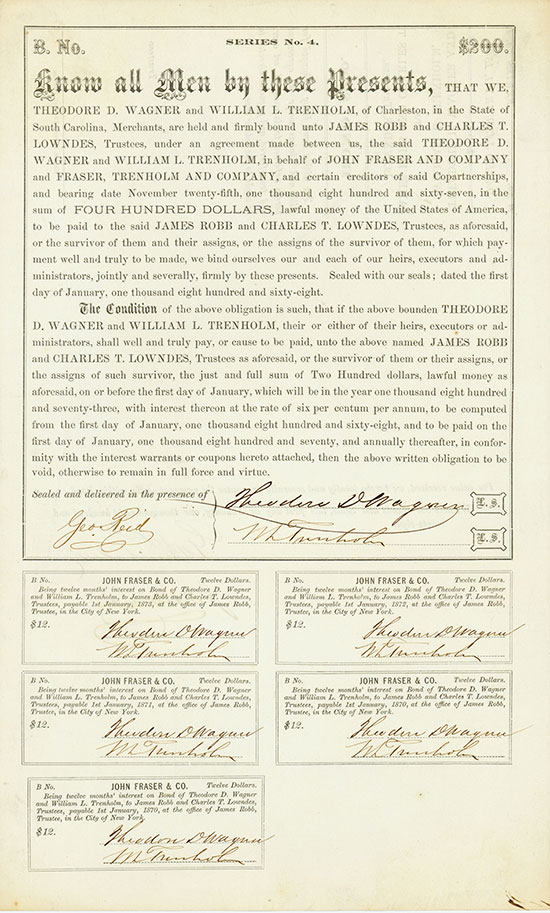 B. No. SERIES No. 4. $200.
Know all Men by these Presents, THAT WE,
THEODORE D. WAGNER and WILLIAM L. TRENHOLM, of Charleston, in the State of
South Carolina, Merchants, are held and firmly bound unto JAMES ROBB and CHARLES T.
LOWNDES, Trustees, under an agreement made between us, the said THEODORE D.
WAGNER and WILLIAM L. TRENHOLM, in behalf of JOHN FRASER AND COMPANY
and FRASER, TRENHOLM AND COMPANY, and certain creditors of said Copartnerships,
and bearing date November twenty-fifth, one thousand eight hundred and sixty-seven, in the
sum of FOUR HUNDRED DOLLARS, lawful money of the United States of America,
to be paid to the said JAMES ROBB and CHARLES T. LOWNDES, Trustees, as aforesaid,
or the survivor of them and their assigns, or the assigns of the survivor of them, for which pay-
ment well and truly to be made, we bind ourselves our and each of our heirs, executors and ad-
ministrators, jointly and severally, firmly by these presents. Sealed with our seals; dated the first
day of January, one thousand eight hundred and sixty-eight.
The Condition of the above obligation is such, that if the above bounden THEODORE
D. WAGNER and WILLIAM L. TRENHOLM, their or either of their heirs, executors or ad-
ministrators, shall well and truly pay, or cause to be paid, unto the above named JAMES ROBB
and CHARLES T. LOWNDES, Trustees as aforesaid, or the survivor of them or their assigns, or
the assigns of such survivor, the just and full sum of Two Hundred dollars, lawful money as
aforesaid, on or before the first day of January, which will be in the year one thousand eight hundred
and seventy-three, with interest thereon at the rate of six per centum per annum, to be computed
from the first day of January, one thousand eight hundred and sixty-eight, and to be paid on the
first day of January, one thousand eight hundred and seventy, and annually thereafter, in confor-
mity with the interest warrants or coupons hereto attached, then the above written obligation to be
void, otherwise to remain in full force and virtue.
Sealed and delivered in the presence of Theodore D Wagner L. S.
Geo Reid W L Trenholm L. S.
B No. JOHN FRASER & CO. Twelve Dollars.
Being twelve months' interest on Bond of Theodore D. Wagner
and William L. Trenholm, to James Robb and Charles T. Lowndes,
Trustees, payable 1st January, 1873, at the office of James Robb,
Trustee, in the City of New York.
$12. Theodore D Wagner
W L Trenholm
B No. JOHN FRASER & CO. Twelve Dollars.
Being twelve months' interest on Bond of Theodore D. Wagner
and William L. Trenholm, to James Robb and Charles T. Lowndes,
Trustees, payable 1st January, 1872, at the office of James Robb,
Trustee, in the City of New York.
$12. Theodore D Wagner
W L Trenholm
B No. JOHN FRASER & CO. Twelve Dollars.
Being twelve months' interest on Bond of Theodore D. Wagner
and William L. Trenholm, to James Robb and Charles T. Lowndes,
Trustees, payable 1st January, 1871, at the office of James Robb,
Trustee, in the City of New York.
$12. Theodore D Wagner
W L Trenholm
B No. JOHN FRASER & CO. Twelve Dollars.
Being twelve months' interest on Bond of Theodore D. Wagner
and William L. Trenholm, to James Robb and Charles T. Lowndes,
Trustees, payable 1st January, 1870, at the office of James Robb,
Trustee, in the City of New York.
$12. Theodore D Wagner
W L Trenholm
B No. JOHN FRASER & CO. Twelve Dollars.
Being twelve months' interest on Bond of Theodore D. Wagner
and William L. Trenholm, to James Robb and Charles T. Lowndes,
Trustees, payable 1st January, 1870, at the office of James Robb,
Trustee, in the City of New York.
$12. Theodore D Wagner
W L Trenholm